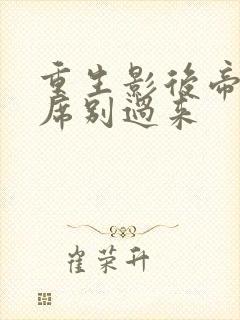 重生影后帝
席别过来
崔荣升